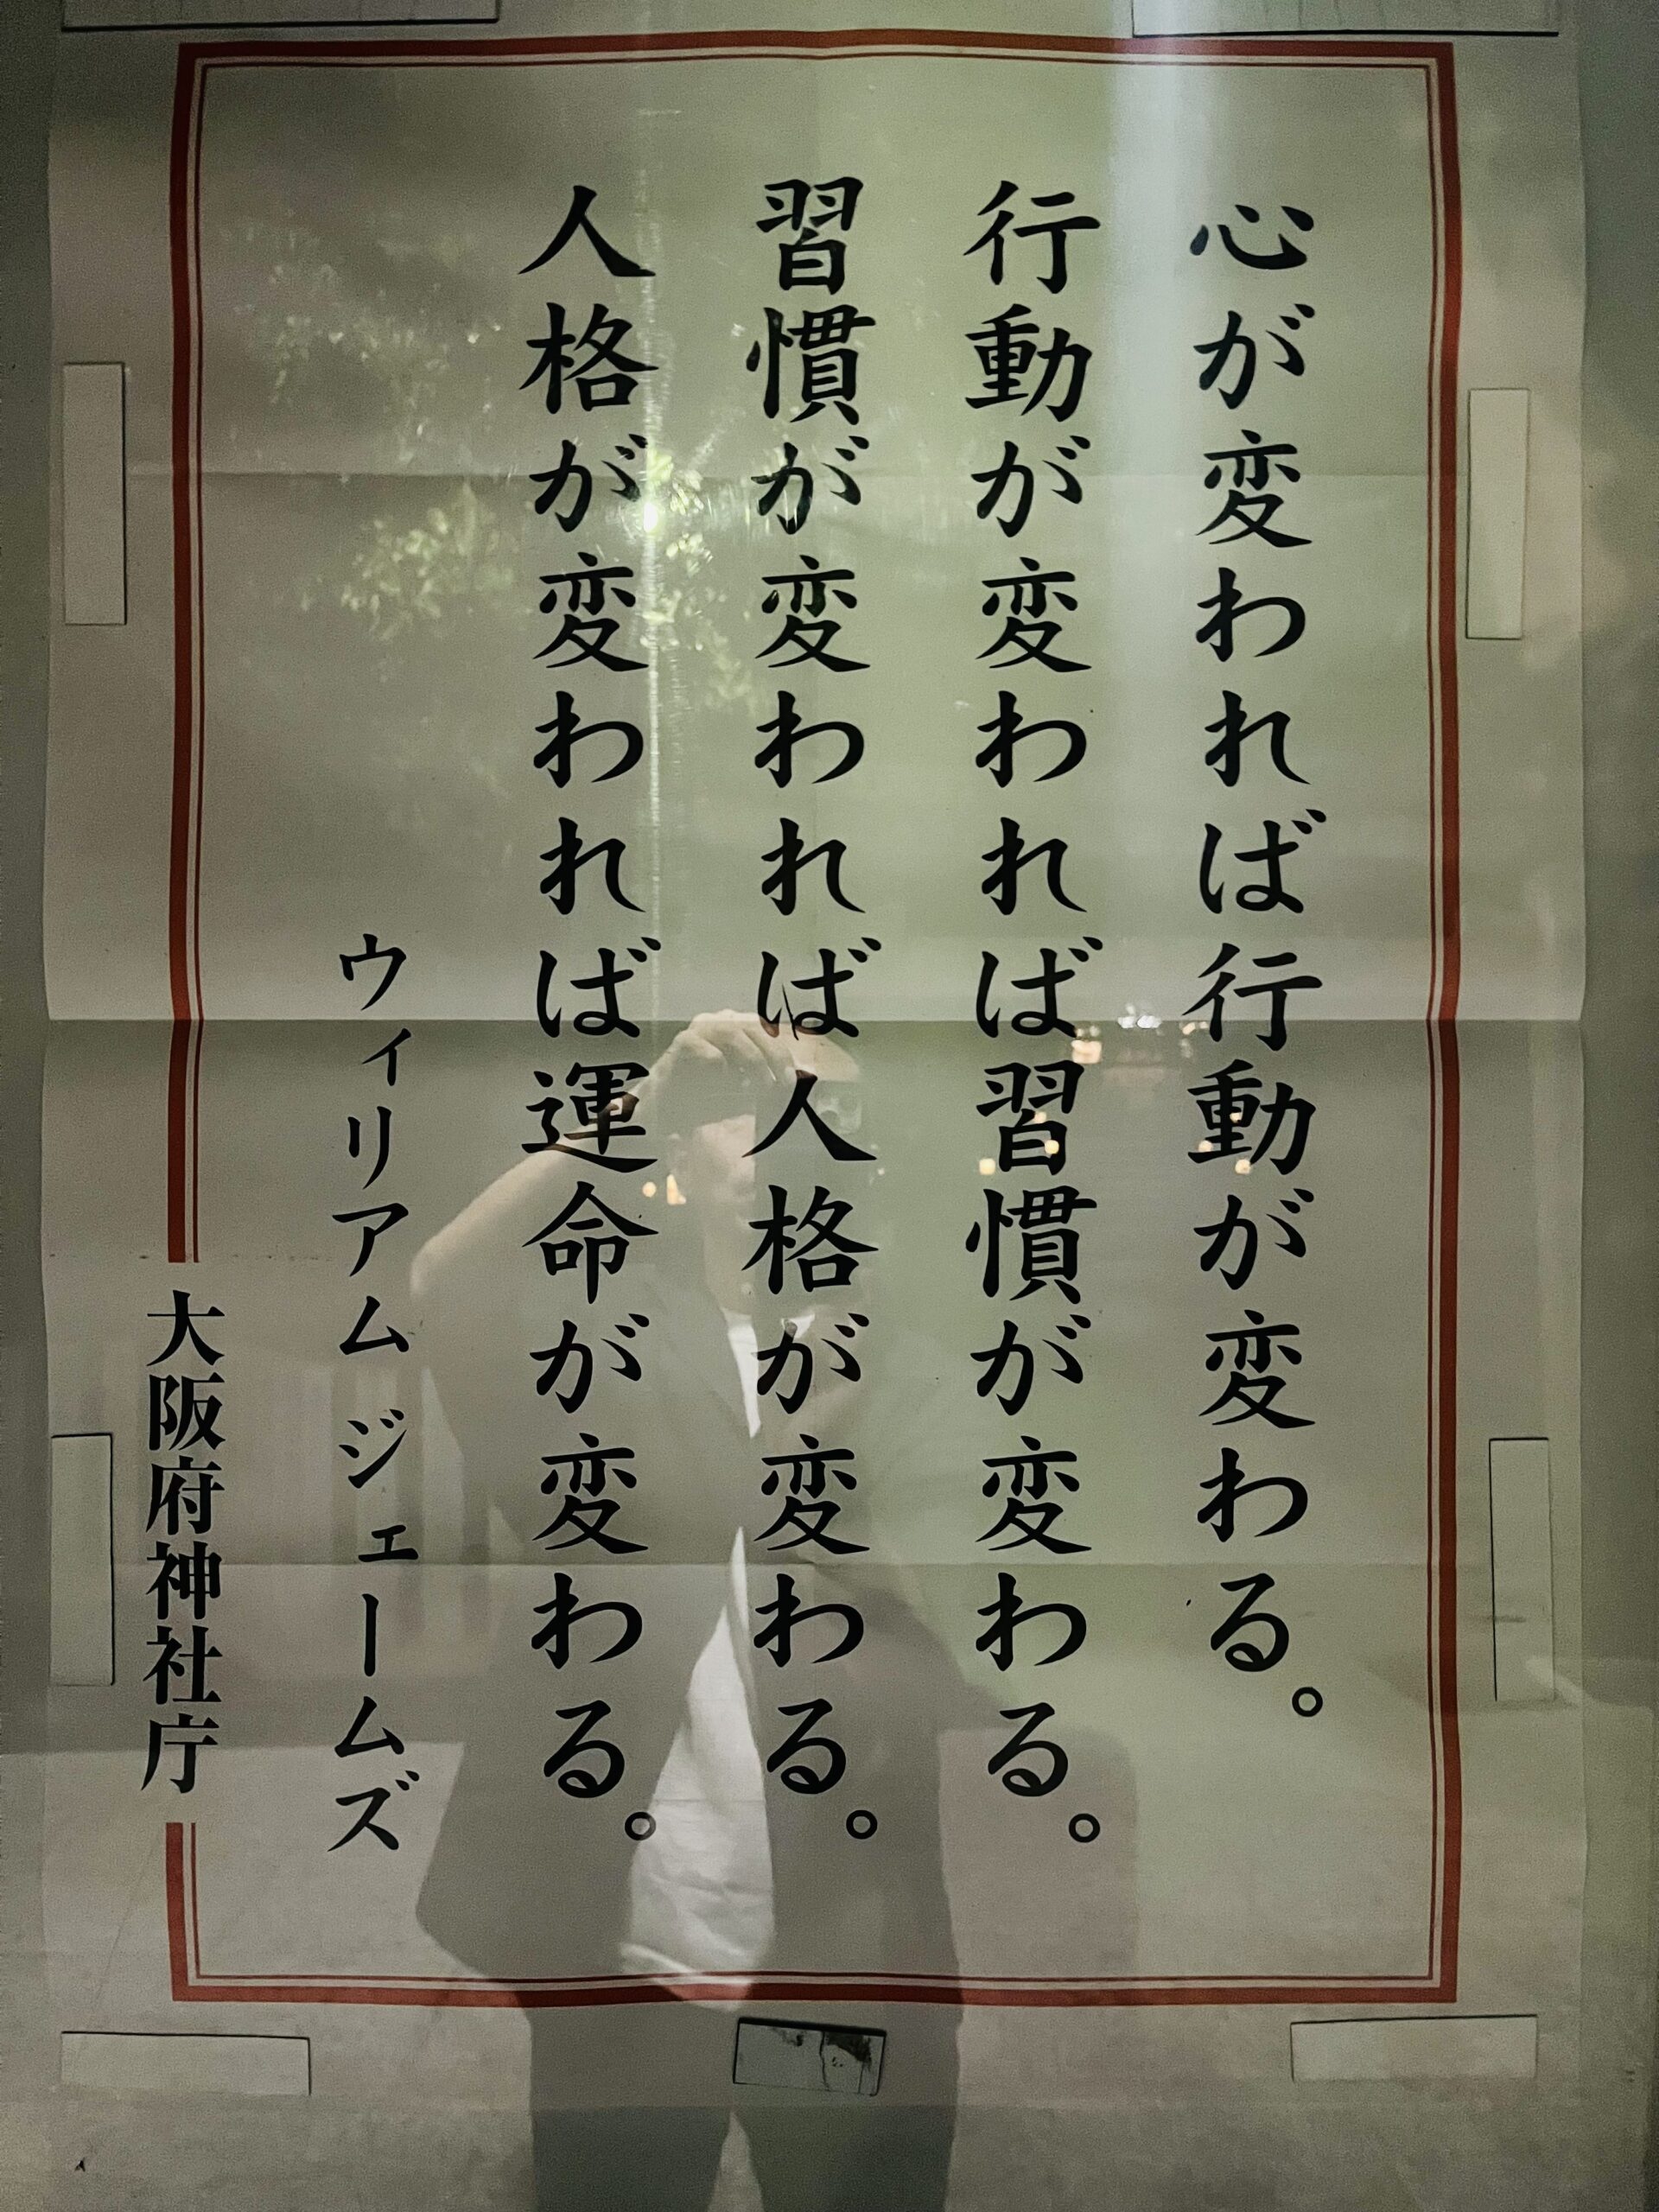 心が変われば行動が変わる。
行動が変われば習慣が変わる。
習慣が変われば人格が変わる。
人格が変われば運命が変わる。
ウィリアムジェームズ
大阪府神社庁